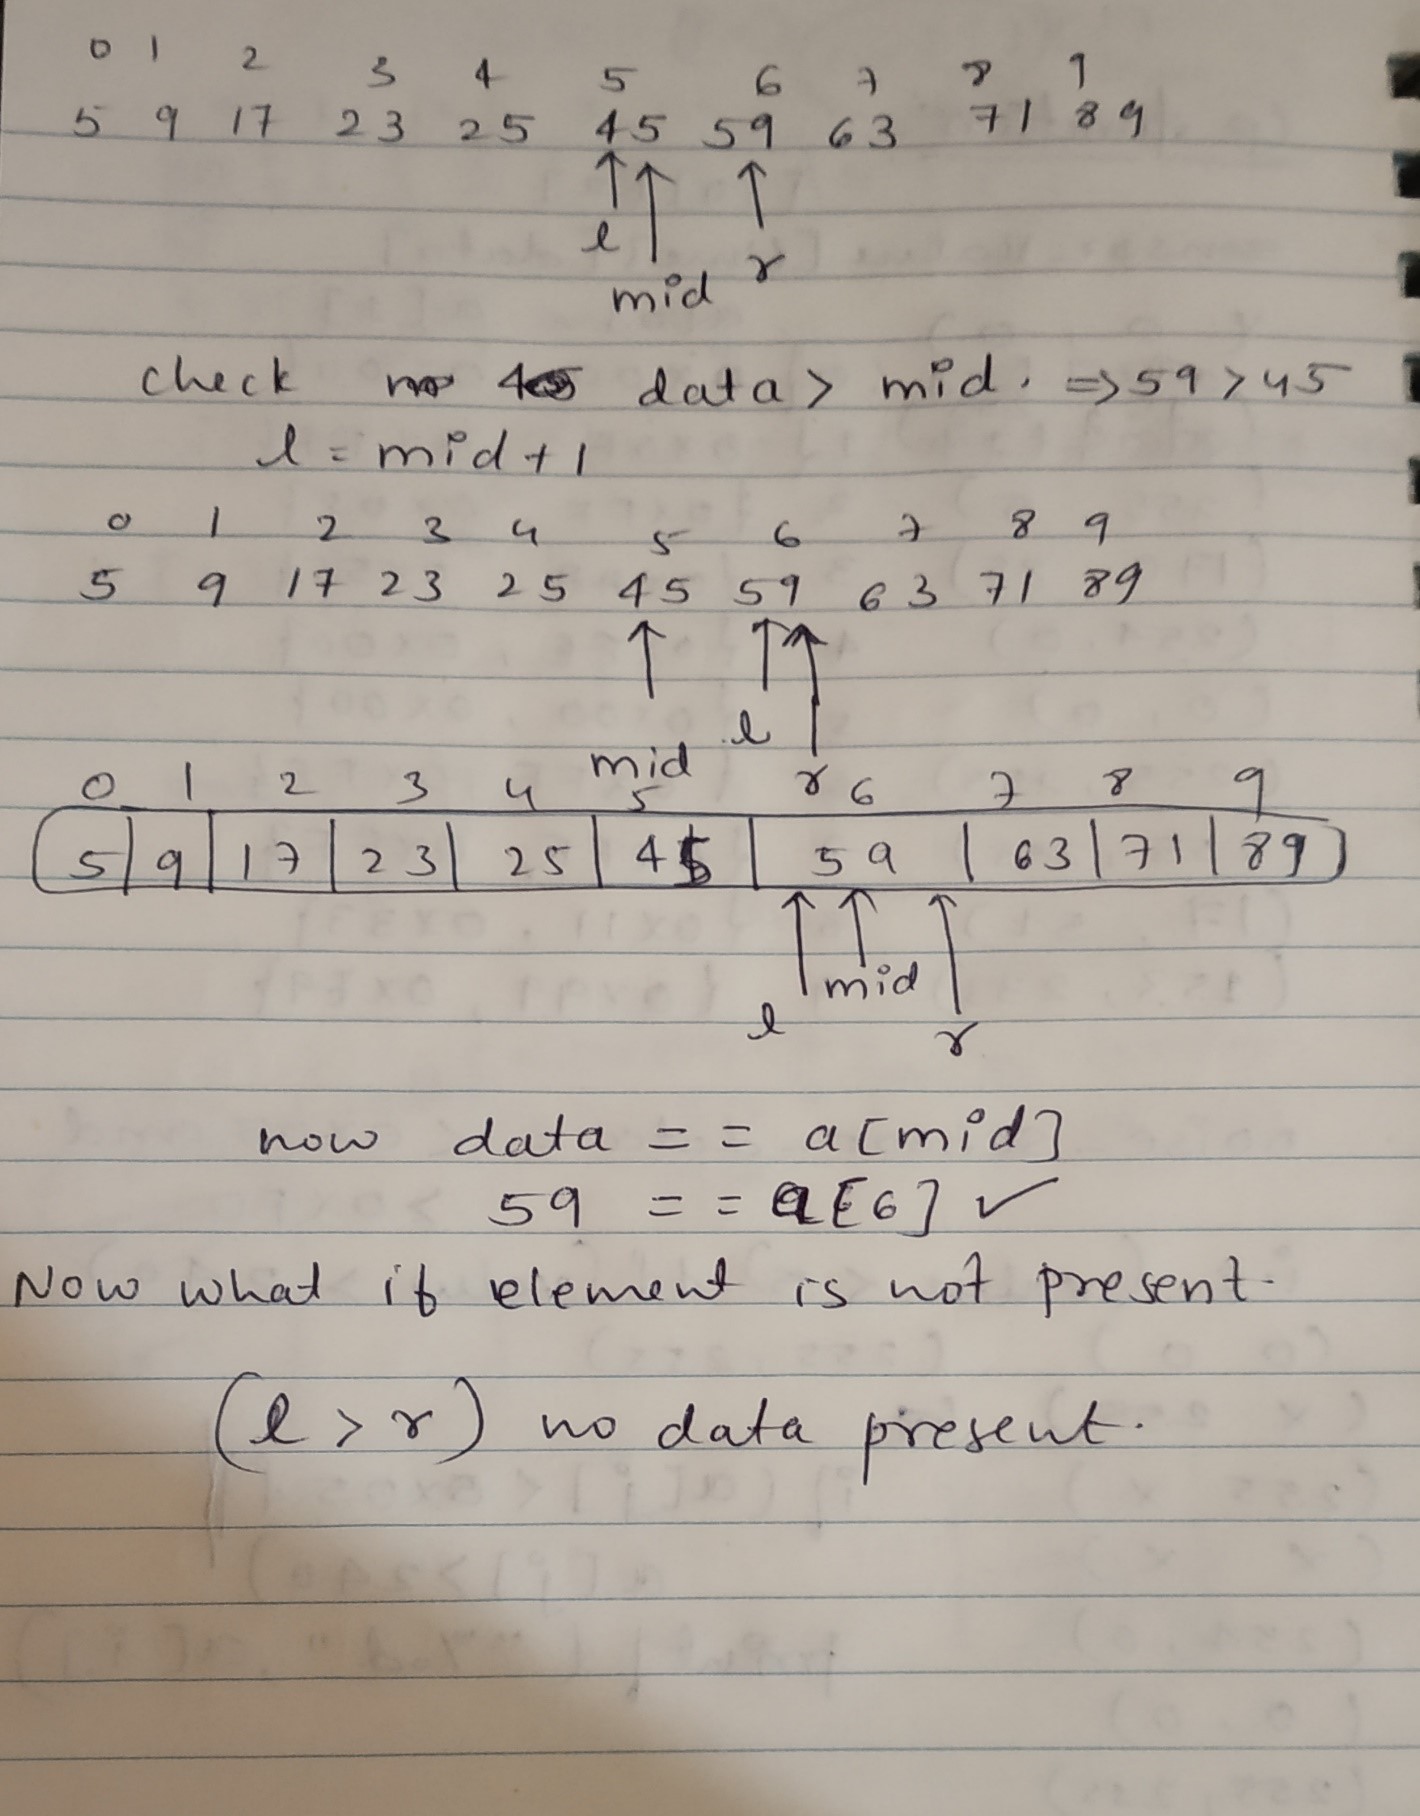 0 1 2 3 4 5 6 7 8 9
5 9 17 23 25 45 59 63 71 89
l mid r
check data > mid. => 59 > 45
l = mid + 1
0 1 2 3 4 5 6 7 8 9
5 9 17 23 25 45 59 63 71 89
mid l r
0 1 2 3 4 5 6 7 8 9
5 | 9 | 17 | 23 | 25 | 45 | 59 | 63 | 71 | 89
l mid r
now data == a[mid]
59 == a[6] ✓
Now what if element is not present.
(l > r) no data present.